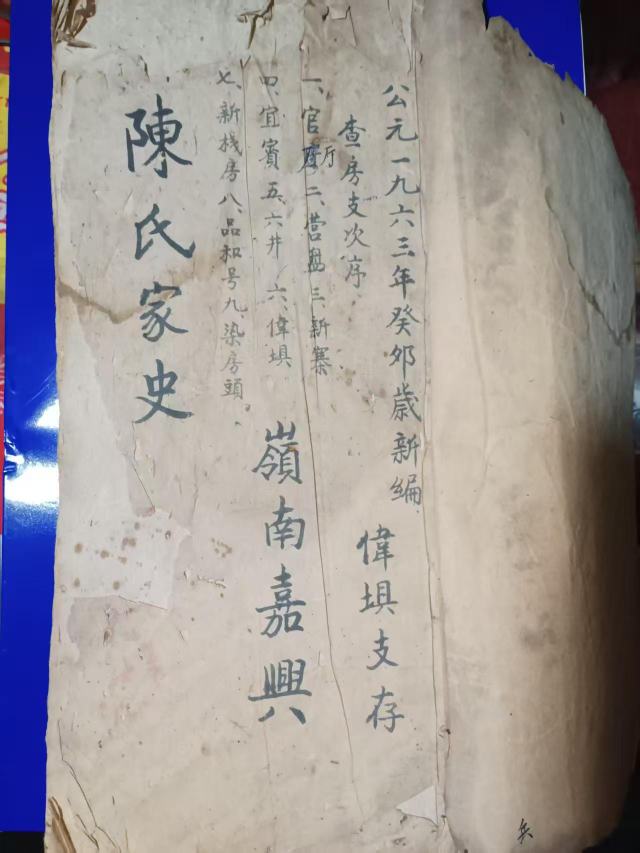 公元一九六三年癸卯歲新编
偉垻支存
查房支次序
一、官廳 二、营盘 三、新寨
四、宜賓 五、六井 六、偉垻
七、新栈房 八、品和号 九、染房頭。
嶺南嘉興
陳氏家史
兵